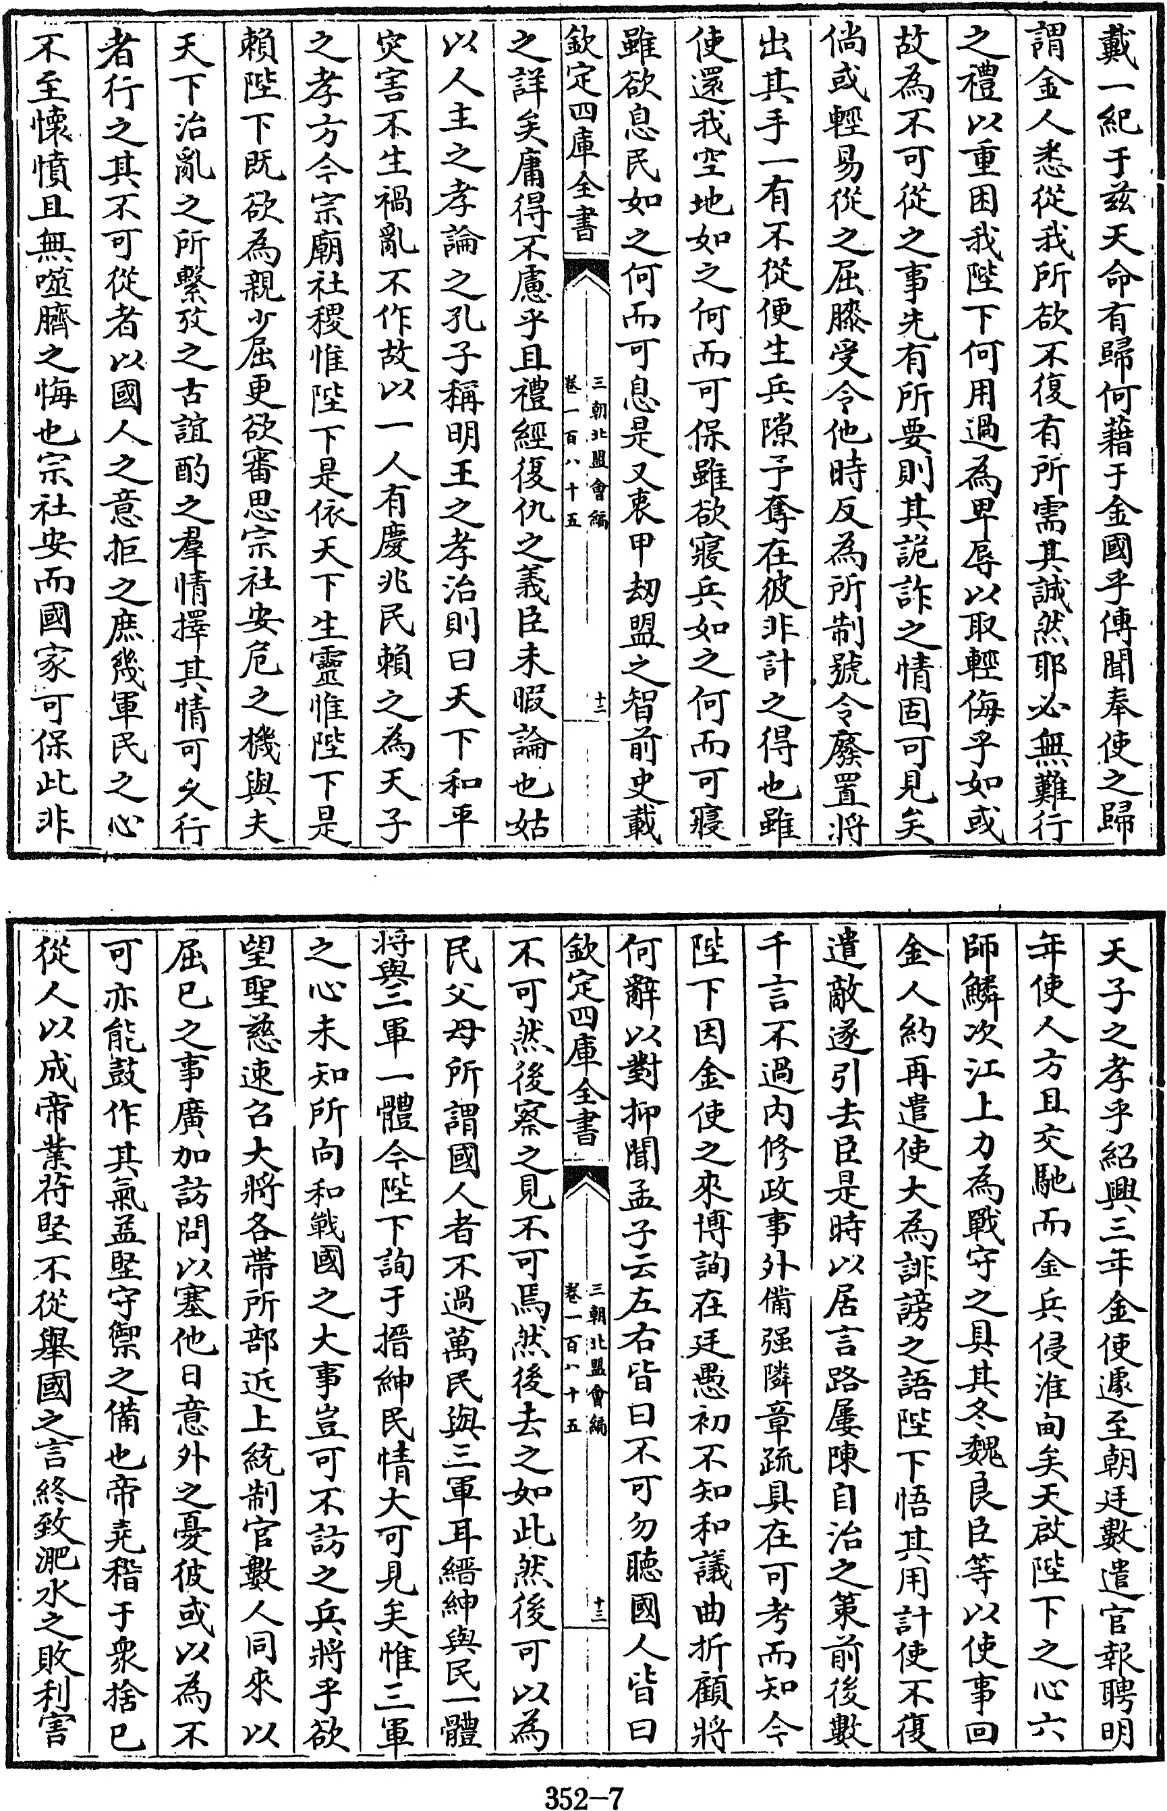 戴一紀于兹天命有歸何藉于金國乎傳聞奉使之歸
謂金人悉從我所欲不復有所需其誠然耶必無難行
之禮以重困我陛下何用過為卑辱以取輕侮乎如或
故為不可從之事先有所要則其詭詐之情固可見矣
倘或輕易從之屈膝受令他時反為所制號令廢置將
出其手一有不從便生兵隙予奪在彼非計之得也雖
使還我空地如之何而可保雖欲寢兵如之何而可寢
雖欲息民如之何而可息是又衷甲刼盟之智前史載
欽定四庫全書
三朝北盟會編
卷一百八十五
十二
之詳矣庸得不慮乎且禮經復仇之義臣未暇論也姑
以人主之孝論之孔子稱明王之孝治則曰天下和平
災害不生禍亂不作故以一人有慶兆民賴之為天子
之孝方今宗廟社稷惟陛下是依天下生靈惟陛下是
賴陛下既欲為親少屈更欲審思宗社安危之機與夫
天下治亂之所繫攷之古誼酌之羣情擇其情可久行
者行之其不可從者以國人之意拒之庶幾軍民之心
不至懷憤且無噬臍之悔也宗社安而國家可保此非
天子之孝乎紹興三年金使遽至朝廷數遣官報聘明
年使人方且交馳而金兵侵淮甸矣天啟陛下之心六
師鱗次江上力為戰守之具其冬魏良臣等以使事回
金人約再遣使大為誹謗之語陛下悟其用計使不復
遣敵遂引去臣是時以居言路屢陳自治之策前後數
千言不過内修政事外備强隣章疏具在可考而知今
陛下因金使之來博詢在廷愚初不知和議曲折顧將
何辭以對抑聞孟子云左右皆曰不可勿聽國人皆曰
欽定四庫全書
三朝北盟會編
卷一百八十五
十三
不可然後察之見不可焉然後去之如此然後可以為
民父母所謂國人者不過萬民與三軍耳縉紳與民一體
將與三軍一體今陛下詢于搢紳民情大可見矣惟三軍
之心未知所向和戰國之大事豈可不訪之兵將乎欲
望聖慈速召大將各帶所部近上統制官數人同來以
屈已之事廣加訪問以塞他日意外之憂彼或以為不
可亦能鼓作其氣益堅守禦之備也帝堯稽于衆捨已
從人以成帝業苻堅不從舉國之言終致淝水之敗利害
352-7